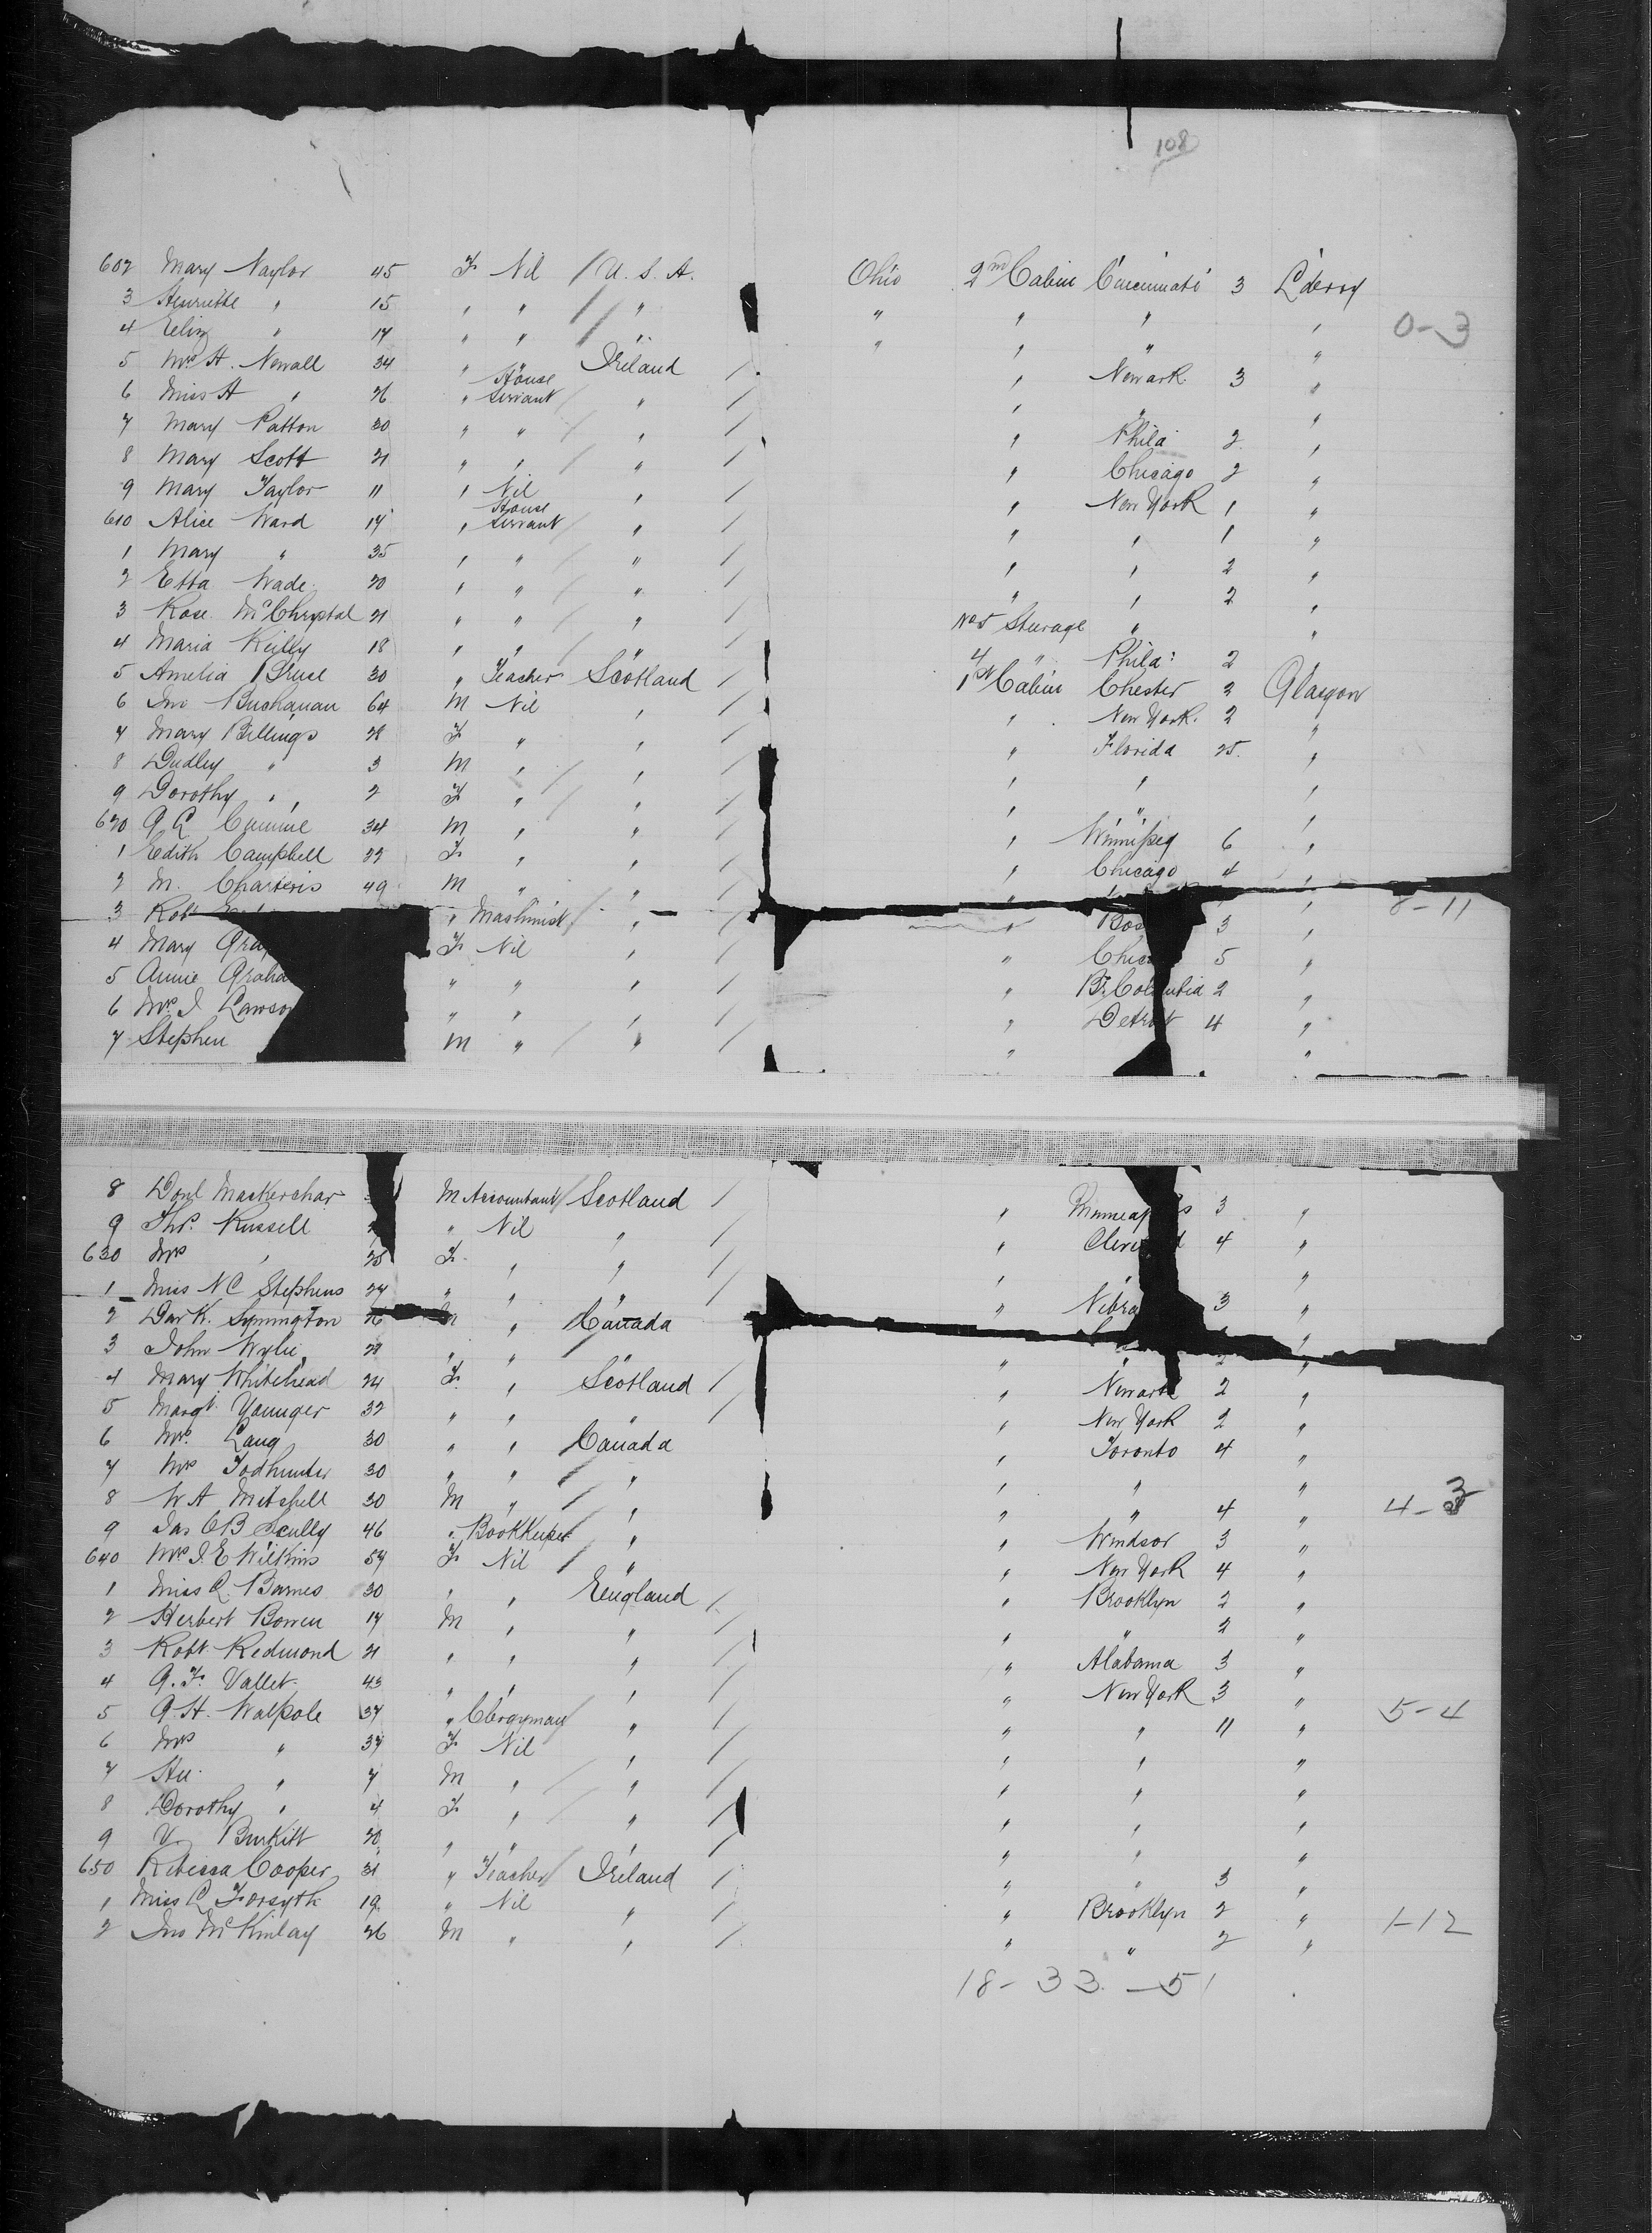 108
602 Mary Naylor 45 F Nil / U.S.A. Ohio 2nd Cabin Cincinnati 3 L'derry
3 Henrietta " 15 " " / " " " " "
4 Eliz " 17 " " / " " " " " 0-3
5 Mrs H. Newall 34 " " Ireland / " Newark 3 "
6 Miss H " 26 " House Servant / " / " " "
7 Mary Patton 30 " " / " / " Phila 2 "
8 Mary Scott 21 " " / " / " Chicago 2 "
9 Mary Taylor 11 " Nil " / " New York 1 "
610 Alice Ward 17 " House Servant / " / " " 1 "
1 Mary " 35 " " / " / " " 2 "
2 Etta Wade 20 " " / " / " " 2 "
3 Rose McChrystal 21 " " / " / No 5 Steerage " "
4 Maria Reilly 18 " " / " / 4 " Phila: 2
5 Amelia Bruce 30 " Teacher Scotland / 1st Cabin Chester 2 Glasgow
6 Jno Buchanan 64 M Nil " / " New York 2 "
7 Mary Billings 28 F " " / " Florida 25 "
8 Dudley " 3 M " / " / " " "
9 Dorothy " 2 F " / " / " " "
620 34 M " " / " Winnipeg 6 "
1 Edith Campbell 33 F " " / " Chicago 4 "
2 M. Charteris 49 M " " / " "
3 Robt " Machinist / " / " Bos 3 " 8-11
4 Mary Gra F Nil " / " Chica 5 "
5 Annie Graha " " " / " Br. Columbia 2 "
6 Mrs J Lawso " " " / " Detroit 4 "
7 Stephen M " / " / " "
8 Donl Mackerchar M Accountant / Scotland / " Minneap s 3 "
9 Thos. Russell " Nil " / " Clevel d 4 "
630 Mrs " 25 F " " / " " "
1 Miss N C Stephens 24 " " " / " Nebra 3 "
2 Symington 26 M " Canada " "
3 John Wylie 28 " " " " " 2 "
4 Mary Whitehead 24 F " Scotland / " Newark 2 "
5 Margt. Younger 32 " " " / " New York 2 "
6 Mrs. Lang 30 " " Canada " Toronto 4 "
7 Mrs Todhunter 30 " " / " " " "
8 W A Mitchell 30 M " / " " " 4 " 4-3
9 Jas OB Scully 46 " Bookkeeper " " Windsor 3 "
640 Mrs J. E Wilkins 54 F Nil / " " New York 4 "
1 Miss C. Barnes 30 " " England / " Brooklyn 2 "
2 Herbert Bowen 17 M " " / " " 2 "
3 Robt. Redmond 21 " " " / " Alabama 3 "
4 A. F. Vallet 43 " " " / " New York 3 "
5 A. H. Walpole 37 " Clergyman / " / " " 11 " 5-4
6 Mrs " 37 F Nil " / " " "
7 " 7 M " / " / " " "
8 Dorothy " 4 F " / " / " " "
9 V. Burkitt 20 " " " / " " "
650 Rebecca Cooper 31 " Teacher / Ireland / " " 3 "
1 Miss C Forsyth 19 " Nil " / " Brooklyn 2 "
2 Jno McKinlay 26 M " " / " " 2 " 1-12
18-33-51